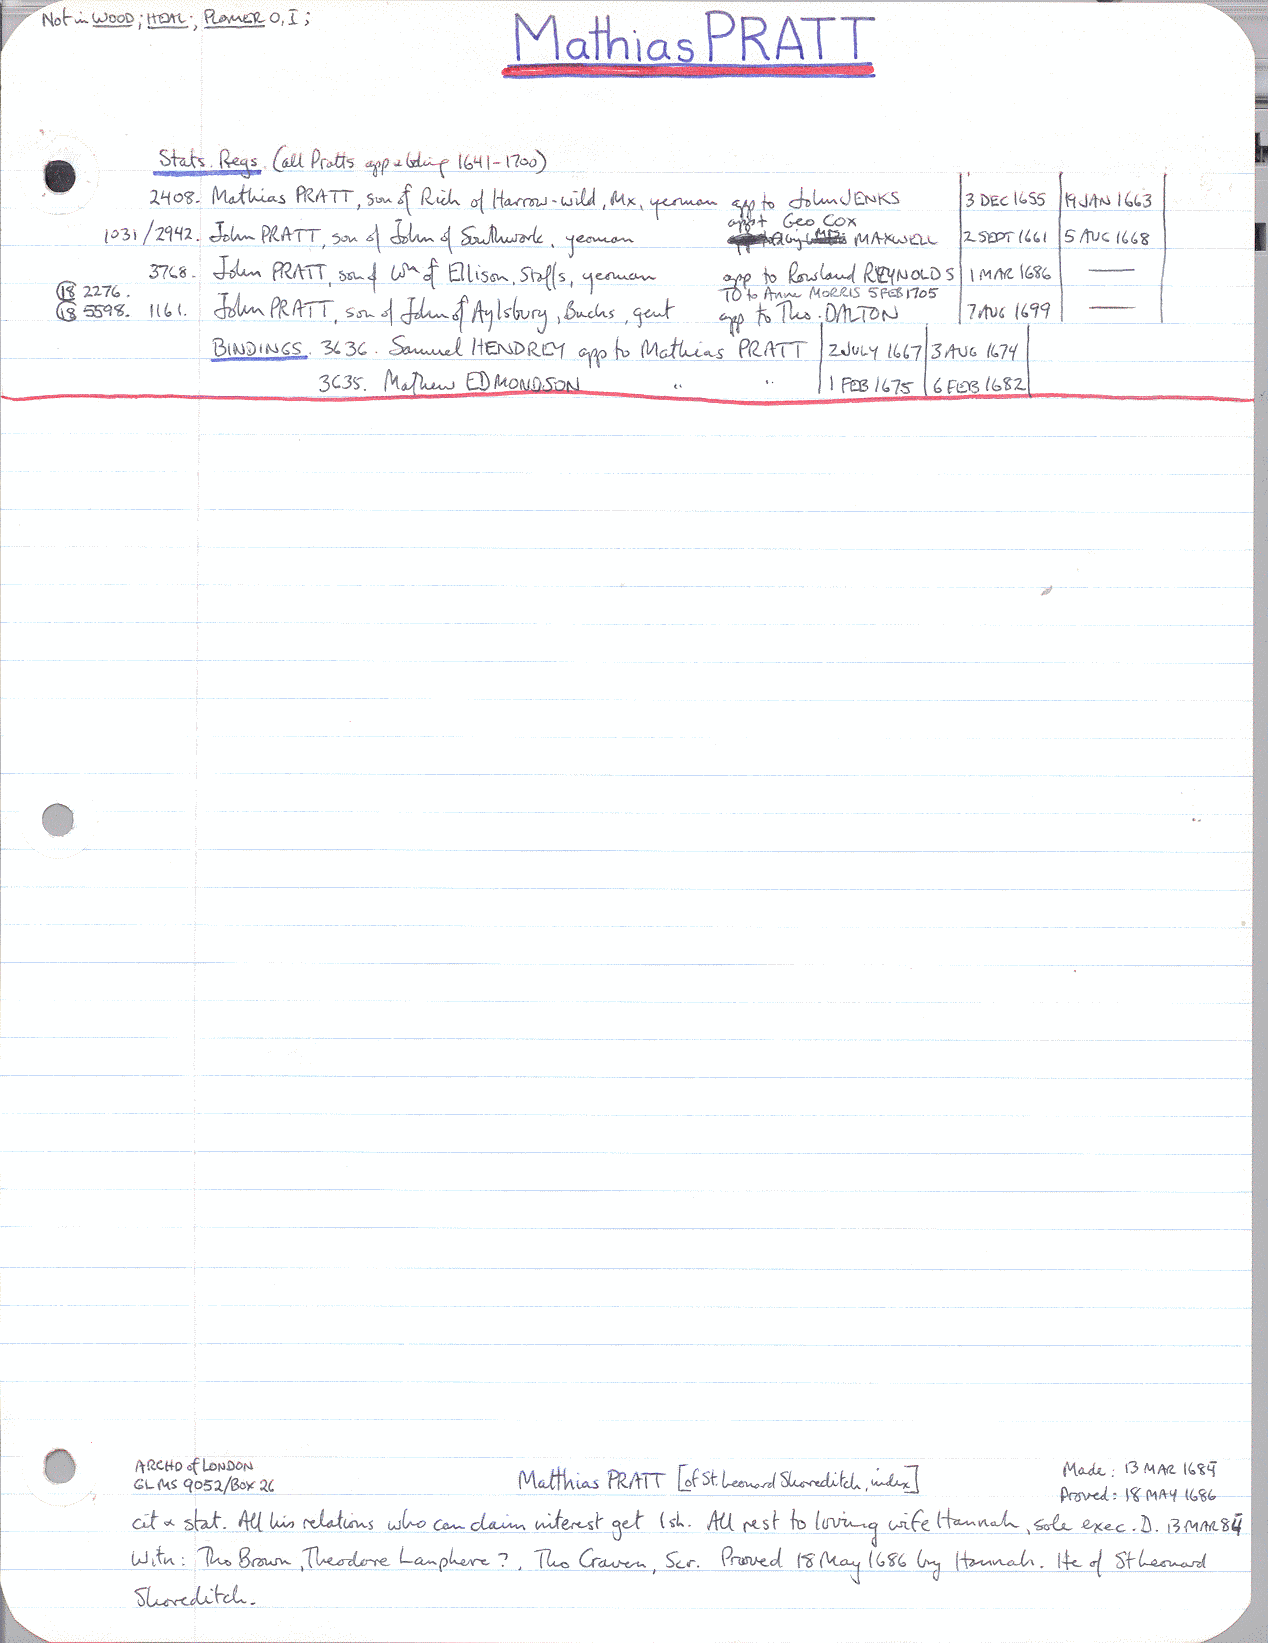 Not in WOOD; HEAL; PLOMER O, I;
Mathias PRATT
Stats. Regs. (all Pratts app & bding 1641-1700)
2408. Mathias PRATT, son of Rich of Harrow-wild, Mx, yeoman app to John JENKS 3 DEC 1655 19 JAN 1663
app t Geo Cox
1031/2942. John PRATT, son of John of Southwark, yeoman MAXWELL 2 SEPT 1661 5 AUG 1668
3768. John PRATT, son of Wm of Ellison, Staffs, yeoman app to Rowland REYNOLDS 1 MAR 1686 —
18 2276. TO to Anne MORRIS 5 FEB 1705
18 5598. 1161. John PRATT, son of John of Aylsbury, Bucks, gent app to Tho. DALTON 7 AUG 1699 —
BINDINGS. 3636. Samuel HENDREY app to Mathias PRATT 2 JULY 1667 3 AUG 1674
3635. Mathew EDMONDSON " " 1 FEB 1675 6 FEB 1682
ARCHD of LONDON
GL MS 9052/Box 26
Matthias PRATT [of St. Leonard Shoreditch, index]
Made: 13 MAR 168
Proved: 18 MAY 1686
cit & stat. All his relations who can claim interest get 1sh. All rest to loving wife Hannah, sole exec. D. 13 MAR
Witn: Tho Brown, Theodore Lanphere?, Tho Craven, Scr. Proved 18 May 1686 by Hannah. He of St Leonard
Shoreditch.